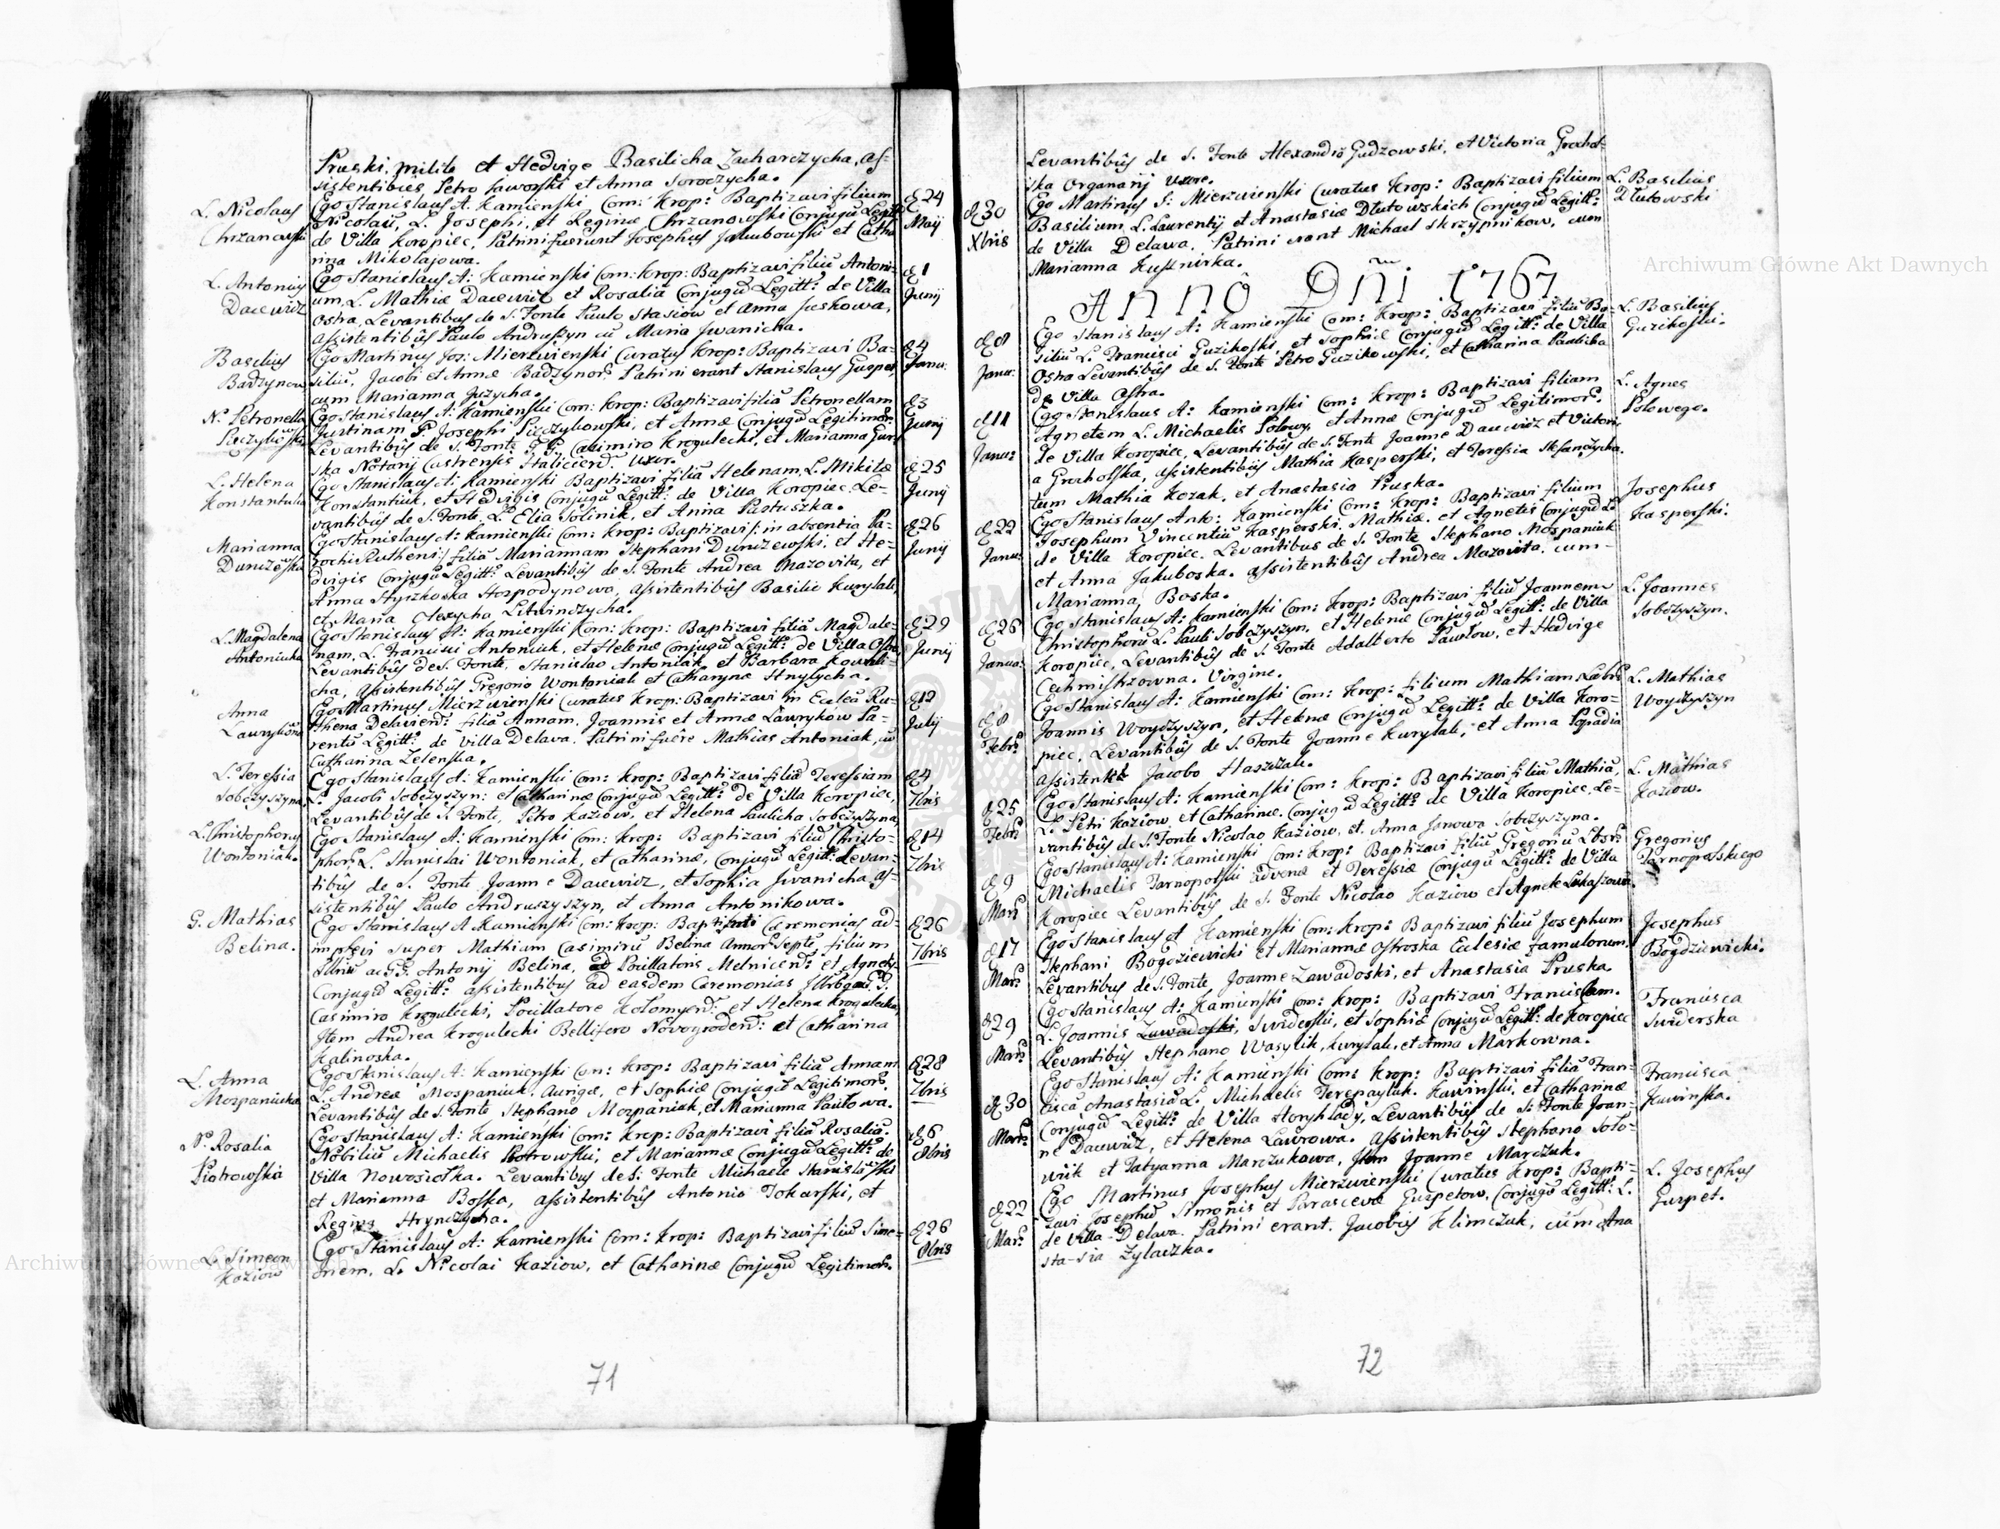 Pruski, milite et Hedvige Basilicha Zacharczycha, as-
sistentibus Petro Jaworski et Anna Soroczycha.
L. Nicolaus
Chrzanowski
Ego Stanislaus A: Kamienski Com: Krop: Baptizavi filium
Nicolaū, L. Josephi, et Reginæ Chrzanowski Conjugū Legitt:
de Villa Koropiec, Patrini fuerunt Josephus Jakubowski et Catha
rina Mikolajowa.
24
Maij
L. Antonius
Dacewicz
Ego Stanislaus A: Kamienski Com: Krop: Baptizavi filiū Antoni-
um, L. Mathiæ Dacewicz et Rosalia Conjugū Legitt: de Villa
Ostra, Levantibus de S. Fonte Paulo Stasiow et Anna Juskowa,
assistentibūs Paulo Andruszyn cū Maria Iwanicha.
1
Junij
Basilius
Badzynow
Ego Martinus Jos: Mierzwienski Curatus Krop: Baptizavi Ba-
siliū, Jacobi et Annæ Badzynow. Patrini erant Stanislaus Gurpet,
cum Marianna Juzycha.
4
Janu:
N. Petronella
Ego Stanislaus A: Kamienski Com: Krop: Baptizavi filiā Petronellam
Justinam P. Josephi et Annæ Conjugū Legitimor.
Levantibūs de S. Fonte P. Casimiro Krogulecki, et Marianna
ska Notarij Castrensis Haliciens. Uxor.
3
Junij
L. Helena
Konstantiuka
Ego Stanislaus A: Kamienski Baptizavi filiā Helenam, L. Mikitæ
Konstantiuk, et Hedvigis Conjugū Legitt: de Villa Koropiec, Le-
vantibūs de S. Fonte, L. Elia Solinik, et Anna Pastuszka.
25
Junij
Marianna
Ego Stanislaus A: Kamienski Com: Krop: Baptizavi in absentia Pa-
rochi Rutheni filiā Mariannam Stephani et He-
dvigis Conjugū Legitt: Levantibūs de S. Fonte Andrea Mazovita, et
Anna Hospodynowa, assistentibūs Basilio Kurylak,
et Maria Olexycha Litwinczycha.
26
Junij
L. Magdalena
Antoniuka
Ego Stanislaus A: Kamienski Com: Krop: Baptizavi filiā Magdale-
nam, L. Francisci Antoniuk, et Helenæ Conjugū Legitt: de Villa Ostra,
Levantibūs de S. Fonte, Stanislao Antoniak, et Barbara Kowali-
cha, assistentibūs Gregorio Wontoniak et Catharyna Hnylycha.
29
Junij
Anna
Ego Martinus Mierzwienski Curatus Krop: Baptizavi in Eccleā Ru-
thena Delaviens: filiā Annam, Joannis et Annæ Lawrykow Pa-
rentū Legitt: de Villa Delava. Patrini fuêre Mathias Antoniak, cū
Catharina Zelenska.
12
Julij
L. Teressia
Sobczyszyna
Ego Stanislaus A: Kamienski Com: Krop: Baptizavi filiā Teressiam
L. Jacobi Sobczyszyn: et Catharinæ Conjugū Legitt: de Villa Koropiec,
Levantibūs de S. Fonte, Petro Kaziow, et Helena Paulicha Sobczyszyna
4
7bris
L. Christophorus
Wontoniak.
Ego Stanislaus A: Kamienski Com: Krop: Baptizavi filiū Christo-
phor, L. Stanislai Wontoniak, et Catharinæ, Conjugū Legitt: Levan-
tibūs de S. Fonte Joanne Dacewicz, et Sophia Iwanicha as-
sistentibūs Paulo Andruszyszyn, et Anna Antonikowa.
14
7bris
G. Mathias
Belina.
Ego Stanislaus A Kamienski Com: Krop: Cæremonias ad-
implevi super Mathiam Casimirū Belina Annor Septē, filium
Antonij Belina, Pocillatoris Melnicens: et Agnetis
Conjugū Legitt: assistentibus ad easdem Ceremonias
Casimiro Krogulecki, Pocillatore Kolomyens: et Helena Krogulecka,
Item Andrea Krogulecki Bellifero Novogrodens: et Catharina
Kalinoska.
26
7bris
L. Anna
Mospaniuka
Ego Stanislaus A: Kamienski Com: Krop: Baptizavi filiā Annam
L. Andreæ Mospaniuk, Aurigæ, et Sophiæ Conjugū Legitimor,
Levantibūs de S. Fonte Stephano Mospaniak, et Marianna Pawlowa.
28
7bris
N. Rosalia
Piotrowska
Ego Stanislaus A: Kamienski Com: Krop: Baptizavi filiā Rosaliā
Nobiliū Michaelis Piotrowski, et Mariannæ Conjugū Legitt: de
Villa Nowosiolka. Levantibus de S. Fonte Michaele Stanislawski
et Marianna Boska, assistentibūs Antonio Tokarski, et
Regina Hrynczycha.
6
8bris
L. Simeon
Kaziow
Ego Stanislaus A: Kamienski Com: Krop: Baptizavi filiū Sime-
onem, L. Nicolai Kaziow, et Catharinæ Conjugū Legitimor.
26
8bris
71
Levantibūs de S. Fonte Alexandrô Gudzowski, et Victoria Grochol-
ska Organarij Uxore.
30
Xbris
Ego Martinus J: Mierzwienski Curatus Krop: Baptizavi filium
Basilium L. Laurentij et Anastasiæ Dlutowskich Conjugū Legitt:
de Villa Delawa. Patrini erant Michael Skrzypnikow, cum
Marianna Kusnirka.
L. Basilius
Dlutowski
Annô Dñi 1767
8
Janu:
Ego Stanislaus A: Kamienski Com: Krop: Baptizavi filiū Ba-
siliū L. Francisci Guzikoski et Sophiæ Conjugū Legitt: de Villa
Ostra Levantibūs de S. Fonte Petro Guzikowski, et Catharina Pawlicha
de Villa Ostra.
L. Basilius
Guzikoski.
11
Janu:
Ego Stanislaus A: Kamienski Com: Krop: Baptizavi filiam
Agnetem L. Michaelis Polowy, et Annæ Conjugū Legitimor.
de Villa Koropiec, Levantibūs de S. Fonte Joanne Dacewicz et Victori
a Grocholska, assistentibūs Mathia Kasperski, et Teressia Stefanczycha.
tum Mathia Kozak, et Anastasia Pruska.
L. Agnes
Polowego.
22
Janu:
Ego Stanislaus Ant: Kamienski Com: Krop: Baptizavi filium
Josephum Vincentiū Kasperski, Mathiæ, et Agnetis Conjugū L.
de Villa Koropiec. Levantibus de S. Fonte Stephano Mospaniuk
et Anna Jakuboska. assistentibūs Andrea Mazovita, cum
Marianna Boska.
Josephus
Kasperski.
26
Janua:
Ego Stanislaus A: Kamienski Com: Krop: Baptizavi filiū Joannem
Christophorū L. Pauli Sobczyszyn, et Helenæ Conjugū Legitt: de Villa
Koropiec, Levantibūs de S. Fonte Adalberto Pawlow, et Hedvige
Cechmistrzowna. Virgine.
L. Joannes
Sobczyszyn.
8
Febr:
Ego Stanislaus A: Kamienski Com: Krop: filium Mathiam
Joannis Woyczyszyn, et Helenæ Conjugū Legitt: de Villa Koro-
piec, Levantibūs de S. Fonte Joanne Kurylak, et Anna Popadia
assistente Jacobo
L. Mathias
Woyczyszyn
25
Febr:
Ego Stanislaus A: Kamienski Com: Krop: Baptizavi filiū Mathiā,
L. Petri Kaziow, et Catharinæ Conjugū Legitt: de Villa Koropiec, Le-
vantibūs de S. Fonte Nicolao Kaziow, et Anna Janowa Sobczyszyna.
L. Mathias
Kaziow.
9
Mart:
Ego Stanislaus A: Kamienski Com: Krop: Baptizavi filiū Gregoriū
Michaelis Tarnopolski Advenæ et Teressiæ Conjugū Legitt: de Villa
Koropiec Levantibūs de S. Fonte Nicolao Kaziow et Agnete Lukaszowa.
Gregorius
Tarnopolskiego
17
Mart:
Ego Stanislaus A Kamienski Com: Krop: Baptizavi filiū Josephum
Stephani Bogdziewicki et Mariannæ Ostroska Ecclesiæ famulorum,
Levantibus de S. Fonte, Joanne Zawadoski, et Anastasia Pruska.
Josephus
Bogdziewicki.
29
Mart:
Ego Stanislaus A: Kamienski Com: Krop: Baptizavi Franciscam
L. Joannis Zawadoski, Swiderski, et Sophiæ Conjugū Legitt: de Koropiec
Levantibūs Stephano Wasylik, Kurylak, et Anna Markowna.
Francisca
Swiderska
30
Mart:
Ego Stanislaus A: Kamienski Com: Krop: Baptizavi filiā Fran-
ciscā Anastasiā L. Michaelis Kawinski, et Catharinæ
Conjugū Legitt: de Villa Horyhlady, Levantibūs de S: Fonte Joan-
ne Dacewicz, et Helena Lawrowa. assistentibūs Stephano Solo-
wik et Tatyanna Marczukowa, Item Joanne Marczuk.
Francisca
Kawinska.
22
Mart:
Ego Martinus Josephus Mierzwienski Curatus Krop: Bapti-
zavi Josephū Simonis et Parascevæ Gurpetow, Conjugū Legitt: L.
de Villa Delava. Patrini erant. Jacobūs Klimczuk, cūm Ana
sta-sia Zylaczka.
L. Josephus
Gurpet.
72
Archiwum Główne Akt Dawnych
Archiwum Główne Akt Dawnych